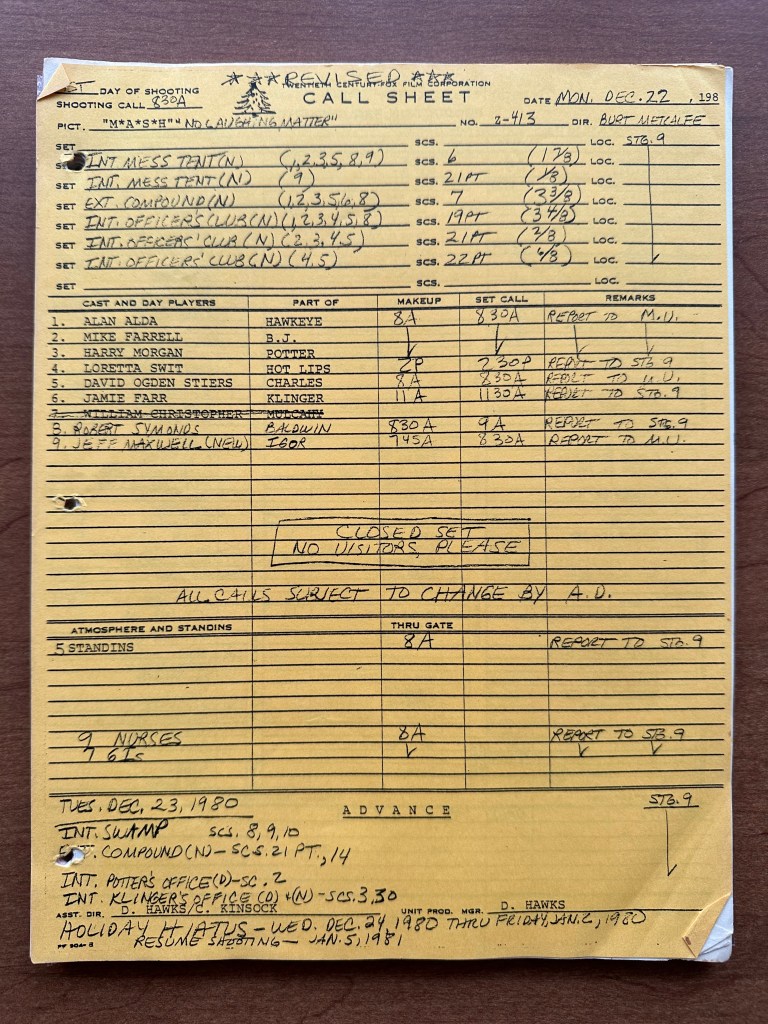 *** REVISED ***
ST DAY OF SHOOTING
TWENTIETH CENTURY-FOX FILM CORPORATION
SHOOTING CALL 830A
CALL SHEET
DATE MON. DEC. 22, 198
PICT. "M*A*S*H" "NO LAUGHING MATTER" NO. Z-413 DIR. BURT METCALFE
SET SCS. LOC. STG. 9
SET INT MESS TENT(N) (1,2,3,5,8,9) SCS. 6 (1 7/8) LOC.
SET INT. MESS TENT(N) (9) SCS. 21PT (1/8) LOC.
SET EXT. COMPOUND(N) (1,2,3,5,6,8) SCS. 7 (3 3/8) LOC.
SET INT. OFFICER'S CLUB(N) (1,2,3,4,5,8) SCS. 19PT (3 4/8) LOC.
SET INT. OFFICERS' CLUB (N) (2,3,4,5) SCS. 21PT (2/8) LOC.
SET INT. OFFICERS' CLUB(N) (4,5) SCS. 22PT LOC.
SET SCS. LOC.
CAST AND DAY PLAYERS PART OF MAKEUP SET CALL REMARKS
1. ALAN ALDA HAWKEYE 8A 830A REPORT TO M.U.
2. MIKE FARRELL B.J.
3. HARRY MORGAN POTTER
4. LORETTA SWIT HOT LIPS 2P 230P REPORT TO STG 9
5. DAVID OGDEN STIERS CHARLES 8A 830A REPORT TO M.U.
6. JAMIE FARR KLINGER 11A 1130A REPORT TO STG. 9
7. WILLIAM CHRISTOPHER MULCAHY
8. ROBERT SYMONDS BALDWIN 830A 9A REPORT TO STG. 9
9. JEFF MAXWELL (NEW) IGOR 745A 830A REPORT TO M.U.
CLOSED SET
NO VISITORS, PLEASE
ALL CALLS SUBJECT TO CHANGE BY A.D.
ATMOSPHERE AND STANDINS THRU GATE
5 STANDINS 8A REPORT TO STG. 9
9 NURSES 8A REPORT TO STG. 9
7 GIs
TUES. DEC. 23, 1980 ADVANCE STG. 9
INT. SWAMP SCS. 8, 9, 10
EXT. COMPOUND (N) - SCS. 21 PT., 14
INT. POTTER'S OFFICE (D) - SC. 2
INT. KLINGER'S OFFICE (D) + (N) - SCS. 3, 30
ASST. DIR. D. HAWKS/C. KINSOCK UNIT PROD. MGR. D. HAWKS
HOLIDAY HIATUS - WED. DEC. 24, 1980 THRU FRIDAY, JAN. 2, 1980
PF 904-S RESUME SHOOTING - JAN. 5, 1981